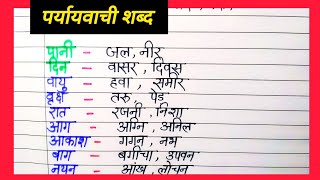 पर्यायवाची शब्द
पानी - जल, नीर
दिन - वासर, दिवस
वायु - हवा, समीर
वृक्ष - तरु, पेड़
रात - रजनी, निशा
आग - अग्नि, अनिल
आकाश - गगन, नभ
बाग - बगीचा, उपवन
नयन - आँख, लोचन